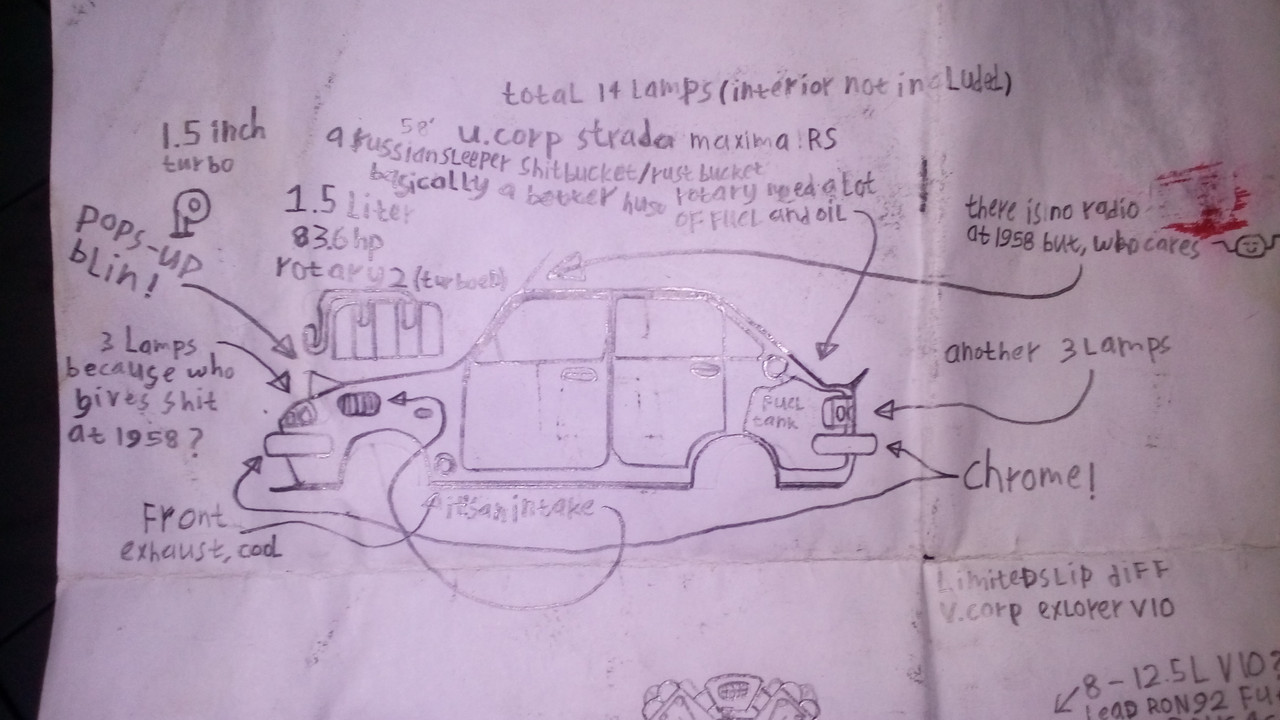 total 14 Lamps (interior not included)
1.5 inch
turbo
58' u.corp strada maxima RS
a russian sleeper shitbucket/rust bucket
basically a better
rotary need a lot
OF FUEL and oil
1.5 Liter
83.6 hp
rotary 2 (turboed)
Pops-up
bLin!
there is no radio
at 1958 but, who cares
3 Lamps
because who
gives shit
at 1958?
another 3 Lamps
FUEL
tank
Chrome!
it's an intake
Front
exhaust, cool
LimitedSLip diFF
V.corp exLorer V10
8-12.5L V10?
Lead RON92 Fu